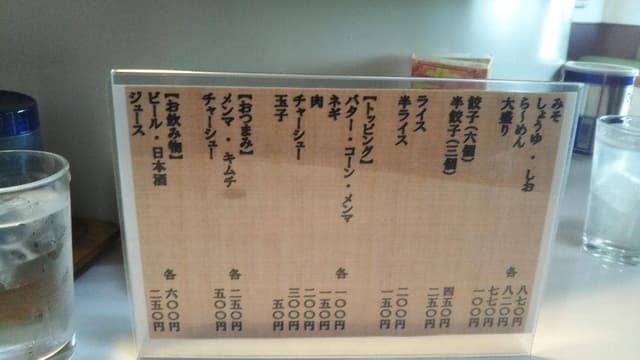 みそ 八七〇円
しょうゆ・しお 各 八二〇円
ら〜めん 七七〇円
大盛り 一〇〇円
餃子(六個) 四五〇円
半餃子(三個) 二五〇円
ライス 二〇〇円
半ライス 一五〇円
【トッピング】
バター・コーン・メンマ 各 一〇〇円
ネギ 一五〇円
肉 二〇〇円
チャーシュー 三〇〇円
玉子 五〇円
【おつまみ】
メンマ・キムチ 各 二五〇円
チャーシュー 五〇〇円
【お飲み物】
ビール・日本酒 各 六〇〇円
ジュース 二五〇円